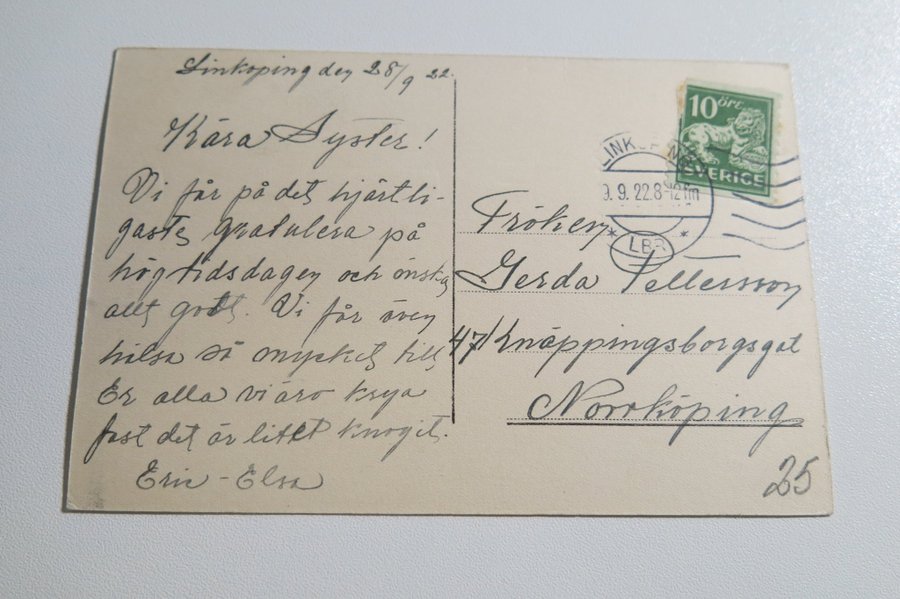 Linköping den 28/9 22.
Kära Syster!
Vi får på det hjärtli-
gaste gratulera på
högtidsdagen och önska
allt godt. Vi får även
hälsa så mycket till
Er alla vi äro krya
fast det är litet knogit.
Eric - Elsa
10 ÖRE
SVERIGE
LINKÖPING
9.9.22.8-12fm
* LBR *
Fröken
Gerda Pettersson
47/Knäppingsborgsgat
Norrköping
25